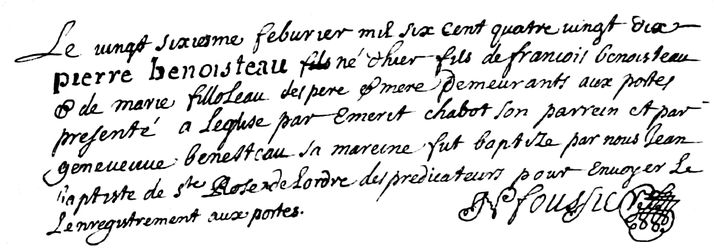 Le vingt sixiesme feburier mil six cent quatre vingt dix
pierre benoisteau fils né d'hier fils de francois benoisteau
& de marie filloleau ses pere & mere Demeurants aux portes
presenté a Leglise par Emeret chabot son parrein et par
genevieuve benesteau sa mareine fut baptize par nous Jean
Baptiste de ste Rose de Lordre des predicateurs pour Envoyer Le
Lenregistrement aux portes.
foussier